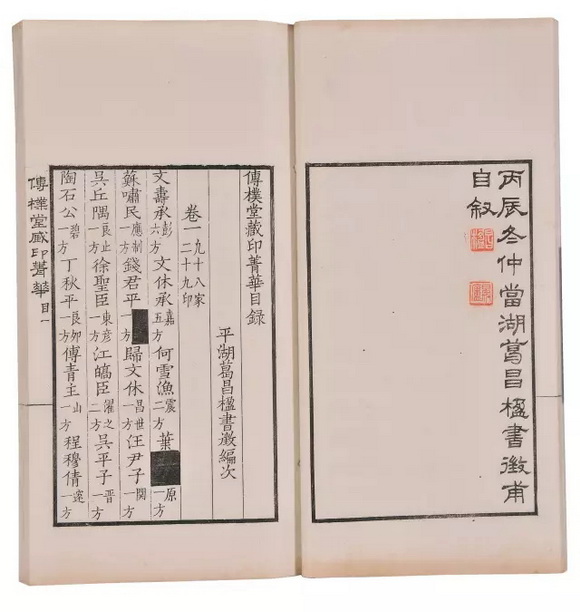 丙辰冬仲當湖葛昌楹書徵甫
自叙
傳樸堂藏印菁華目錄
平湖葛昌楹書徵編次
卷一 九十八家 二十九印
文壽承彭六方 文休承嘉五方 何雪漁震二方 葉原一方
蘇嘯民應制一方 錢君平 歸文休昌世一方 汪尹子關一方
吳丘隅良止一方 徐聖臣東彥一方 江皜臣濯之二方 吳平子晉一方
陶石公碧一方 丁秋平良卯一方 傅青主山一方 程穆倩邃一方
傳樸堂藏印菁華 目一